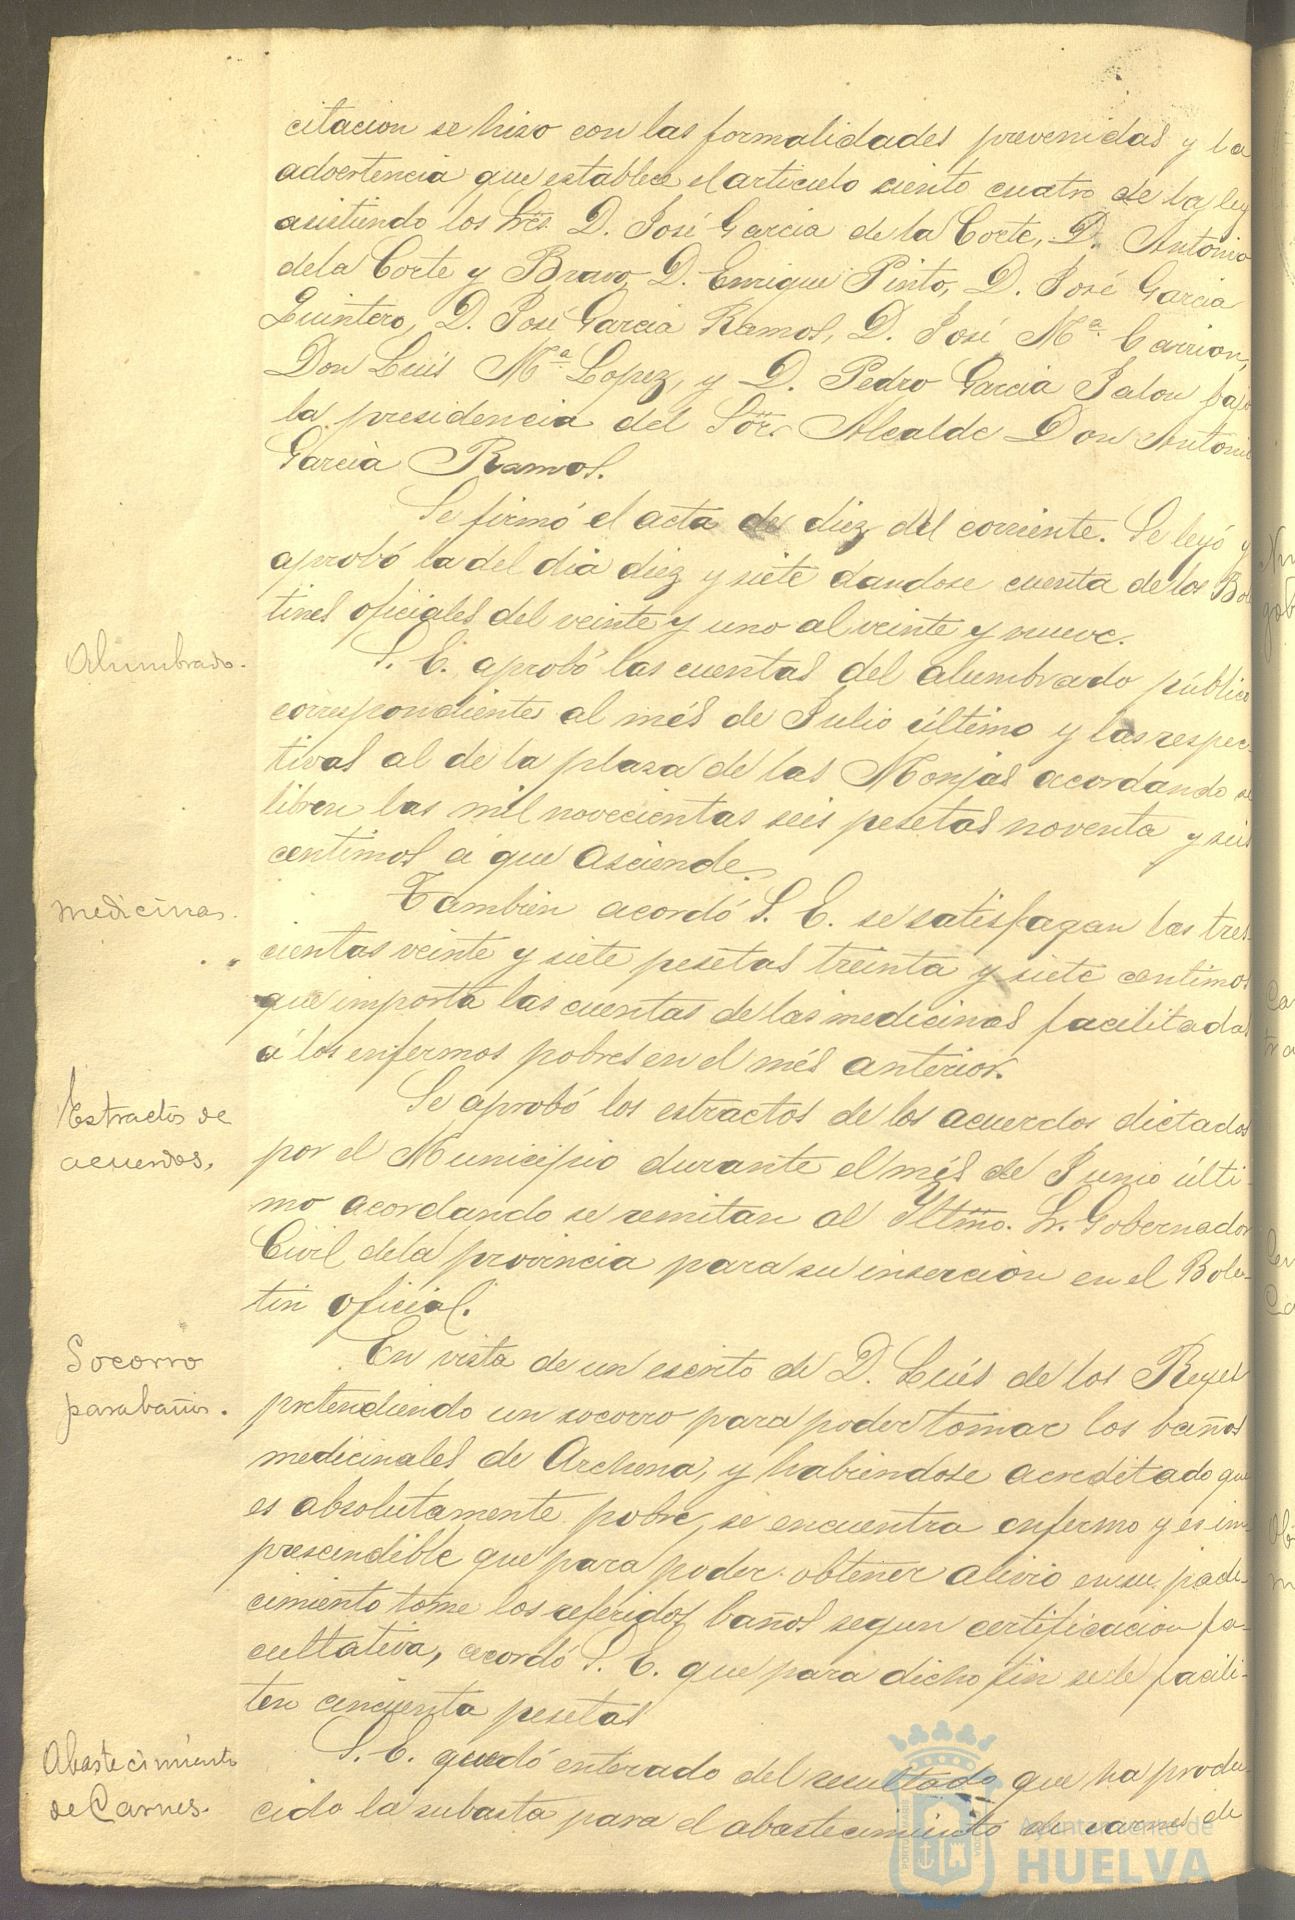 citacion se hizo con las formalidades prevenidas y la
advertencia que establece el articulo ciento cuatro de la ley
asistiendo los Sres. D. José Garcia de la Corte, D. Antonio
de la Corte y Bravo, D. Enrique Pinto, D. José Garcia
Quintero, D. José Garcia Ramos, D. José Mª Carrion,
Don Luis Mª Lopez, y D. Pedro Garcia Jalon bajo
la presidencia del Sor. Alcalde Don Antonio
Garcia Ramos.
Se firmó el acta de diez del corriente. Se leyó y
aprobó la del dia diez y siete dandose cuenta de los Bole
tines oficiales del veinte y uno al veinte y nueve.
Alumbrado.
S. E. aprobó las cuentas del alumbrado público
correspondientes al més de Julio último y las respec-
tivas al de la plaza de las Monjas acordando se
libren las mil novecientas seis pesetas noventa y seis
centimos á que asciende.
Medicinas.
Tambien acordó S. E. se satisfagan las tres-
cientas veinte y siete pesetas treinta y siete centimos
que importa las cuentas de las medicinas facilitadas
á los enfermos pobres en el més anterior.
Estractos de
acuerdos.
Se aprobó los estractos de los acuerdos dictados
por el Municipio durante el més de Junio últi-
mo acordando se remitan al Iltmo. Sr. Gobernador
Civil de la provincia para su insercion en el Bole-
tin oficial.
Socorro
para baños.
En vista de un escrito de D. Luis de los Reyes
pretendiendo un socorro para poder tomar los baños
medicinales de Archena, y habiendose acreditado que
es absolutamente pobre, se encuentra enfermo y es im-
prescindible que para poder obtener alivio en su pade-
cimiento tome los referidos baños segun certificacion fa-
cultativa, acordó S. E. que para dicho fin se le facili-
ten cincuenta pesetas
Abastecimiento
de Carnes.
S. E. quedó enterado del resultado que ha produ
cido la subasta para el abastecimiento de carnes de
Ayuntamiento de
HUELVA